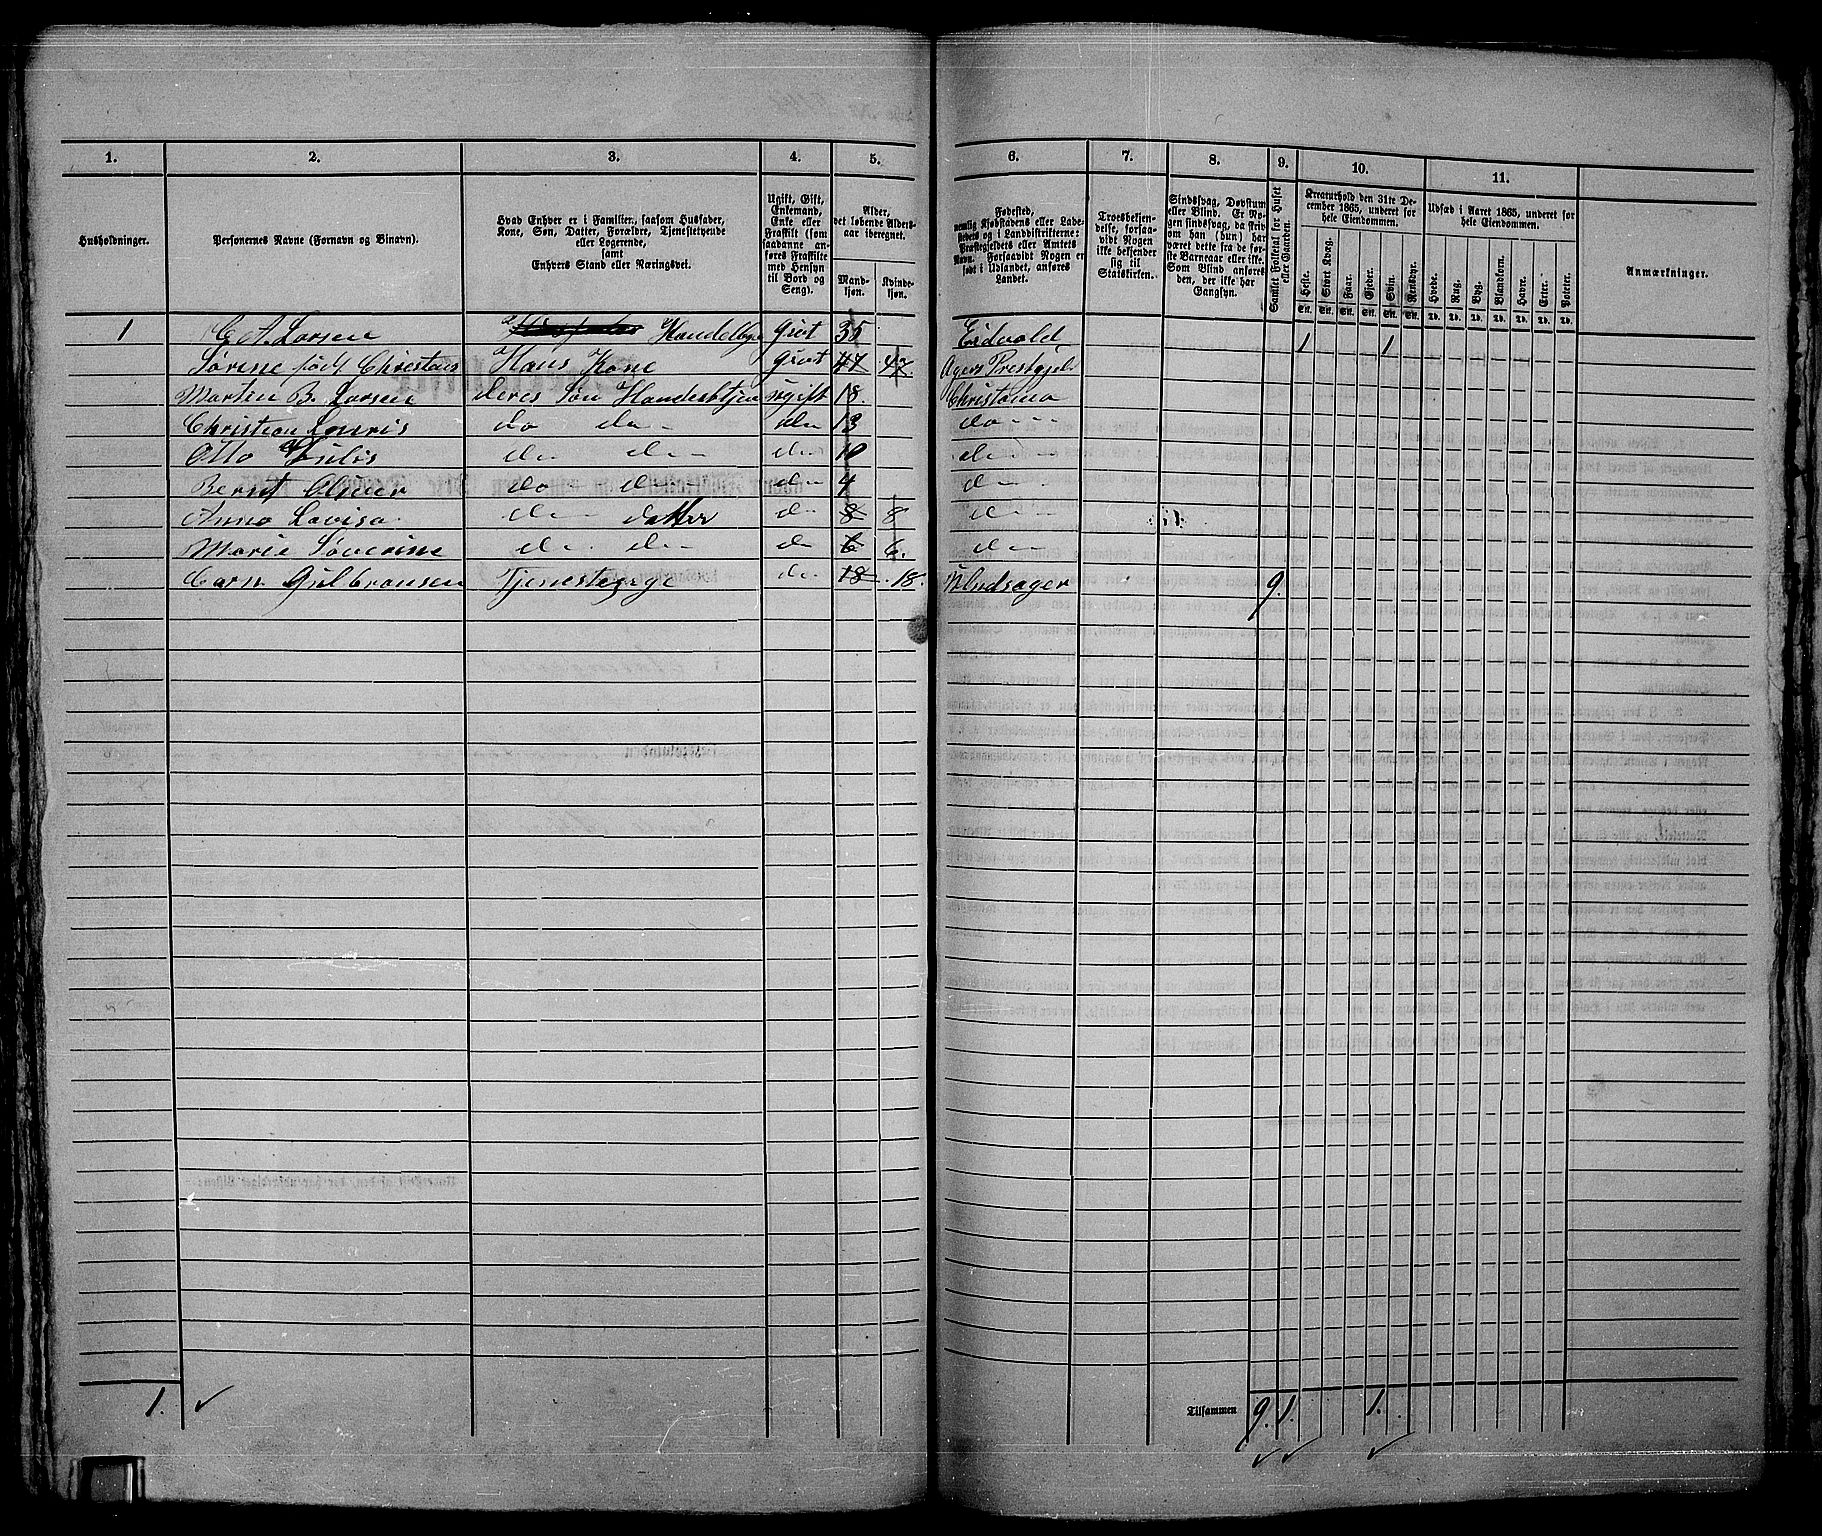 1. 2. 3. 4. 5. 6. 7. 8. 9. 10. 11.
Husholdninger.
Personernes Navne (Fornavn og Binavn).
Hvad Enhver er i Familien, saasom Husfader,
Kone, Søn, Datter, Forældre, Tjenestetyende
eller Logerende,
samt
Enhvers Stand eller Næringsvei.
Ugift, Gift,
Enkemand,
Enke eller
Fraskilt (som
saadanne an-
føres Fraskilte
med Hensyn
til Bord og
Seng).
Alder,
det løbende Alders-
aar iberegnet.
Mand-
kjøn.
Kvinde-
kjøn.
Fødested,
nemlig Kjøbstadens eller Lade-
stedets og i Landdistrikterne:
Præstegjeldets eller Amtets
Navn. Forsaavidt Nogen er
født i Udlandet, anføres
Landet.
Troesbekjen-
delse, forsaa-
vidt Nogen
ikke bekjender
sig til
Statskirken.
Sindssvag, Døvstum
eller Blind. Er No-
gen sindssvag, da skriv
om han (hun) har
været dette fra de før-
ste Barneaar eller ikke.
Som Blind anføres
den, der ikke har
Gangsyn.
Samlet Folketal for Huset
eller Gaarden.
Kreaturhold den 31te De-
cember 1865, underet for
hele Eiendommen.
Heste. Stort Kvæg. Faar. Gjeder. Svin. Rensdyr.
Udsæd i Aaret 1865, underet for
hele Eiendommen.
Hvede. Rug. Byg. Blandkorn. Havre. Erter. Poteter.
Anmærkninger.
St. St. St. St. St. St. Td. Td. Td. Td. Td. Td. Td.
1 C. A. Larsen Handelsbge Givt 35 Eidvold 1 1
Sørine født Christans Hans Kone givt 47 47. Agers Prestgjeld
Morten B. Larsen deres Søn Handelsbtjen ugift 18 Christania
Christian Louris do do do 13 do
Otto Julis do do do 10 do
Bernt Olmer do do do 4 do
Anna Lovisa do datter do 8 8 do
Marie Søverine do do do 6 6. do
Carn Gulbransen Tjenestepige do 18 18. Udsager 9.
1.
Tilsammen 9. 1. 1.